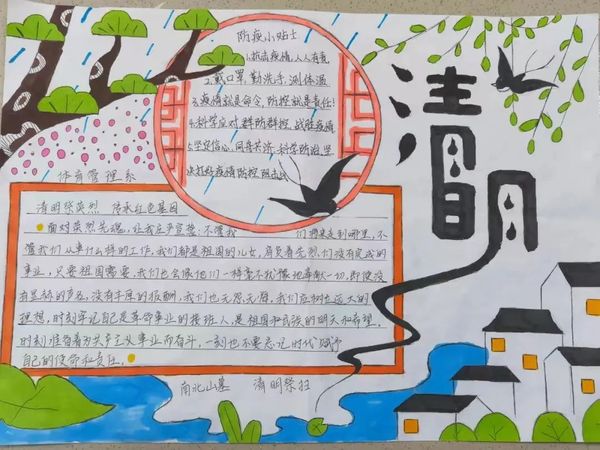 防疫小贴士
1.抗击疫情,人人有责
2.戴口罩,勤洗手,测体温
3.疫情就是命令,防控就是责任!
4.科学应对,群防群控,战胜疫情
5.坚定信心,同舟共济,科学防治,坚
决打好疫情防控阻击战
清明
体育管理系
清明祭英烈 传承红色基因
面对英烈先魂,让我庄严宣誓:不管我们将来走到哪里,不
管我们从事什么样的工作,我们都是祖国的儿女,肩负着先烈们没有完成的
事业,只要祖国需要,我们也会像他们一样毫不犹豫地奉献一切,即使没
有显赫的声名,没有丰厚的报酬,我们也无怨无悔,我们应树立远大的
理想,时刻牢记自己是革命事业的接班人,是祖国和民族的明天和希望。
时刻准备着为共产主义事业而奋斗,一刻也不要忘记时代赋予
自己的使命和责任。
南北山墓 清明祭扫